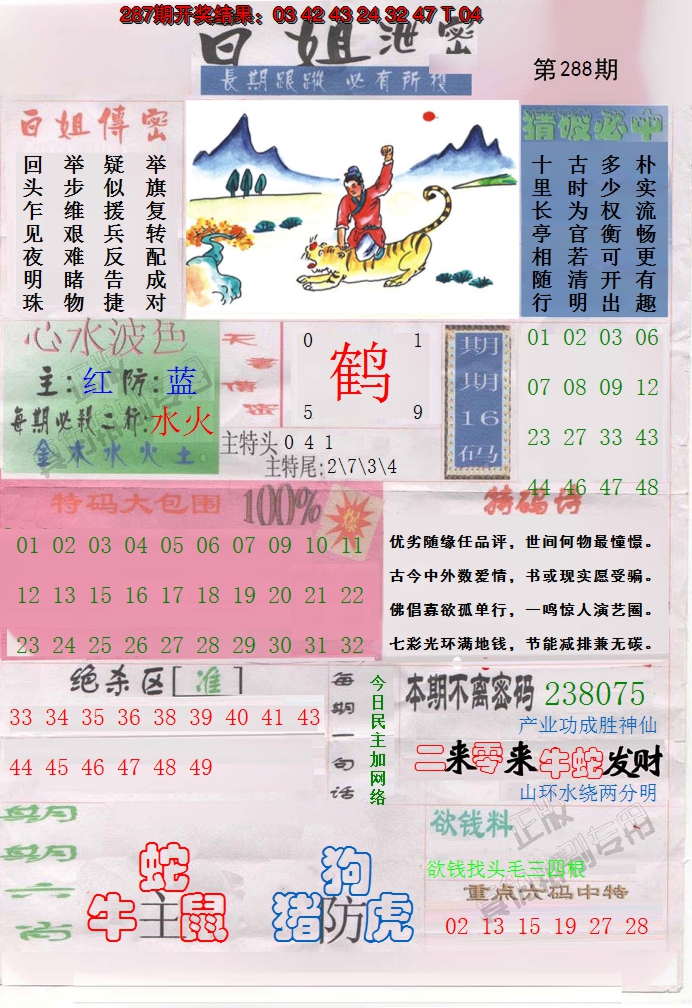 287期开奖结果：03 42 43 24 32 47 T 04
白姐泄密
長期跟蹤 必有所獲
第288期
白姐傳密
举旗复转配成对
疑似援兵反告捷
举步维艰难睹物
回头乍见夜明珠
猜波必中
朴实流畅更有趣
多少权衡可开出
古时为官若清明
十里长亭相随行
心水波色
主：红 防：蓝
每期必殺二行：水火
金木水火土
天書信密
0 1
鹤
5 9
主特头 0 4 1
主特尾：2\7\3\4
期期16码
01 02 03 06
07 08 09 12
23 27 33 43
44 46 47 48
特码大包围 100%
01 02 03 04 05 06 07 09 10 11
12 13 15 16 17 18 19 20 21 22
23 24 25 26 27 28 29 30 31 32
特码诗
优劣随缘任品评，世间何物最憧憬。
古今中外数爱情，书或现实愿受骗。
佛倡寡欲孤单行，一鸣惊人演艺圈。
七彩光环满地钱，节能减排兼无碳。
绝杀区[准]
33 34 35 36 38 39 40 41 43
44 45 46 47 48 49
每期一句话
今日民主加网络
本期不离密码 238075
产业功成胜神仙
二来零来牛蛇发财
山环水绕两分明
每期六肖
蛇
牛主鼠
狗
猪防虎
欲钱料
欲钱找头毛三四根
重点六码中特
02 13 15 19 27 28